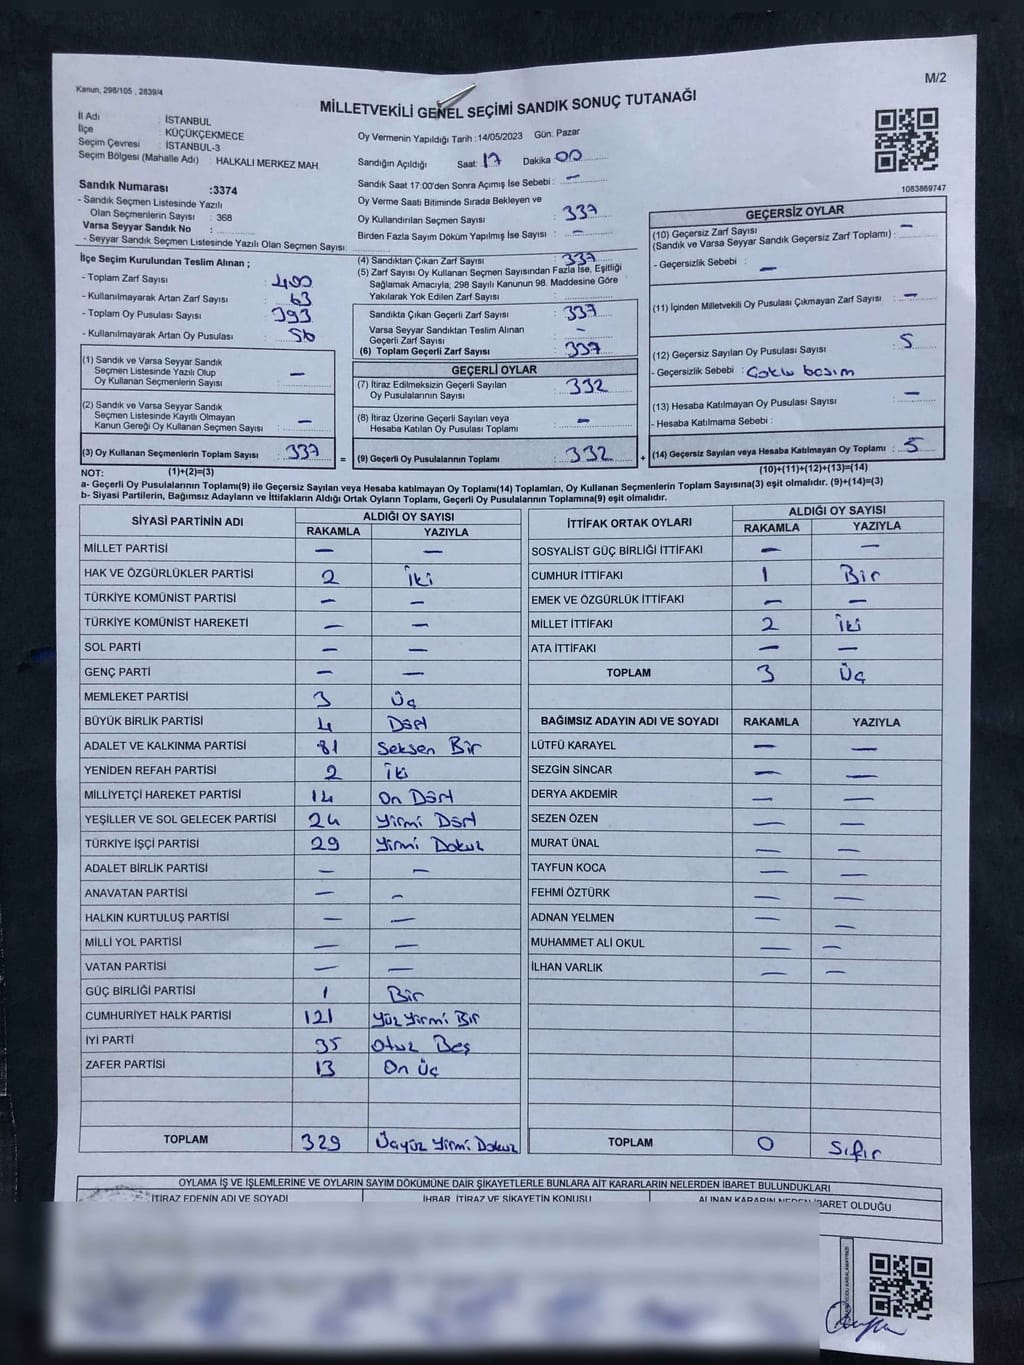 Kanun, 298/105 , 2839/4
M/2
MİLLETVEKİLİ GENEL SEÇİMİ SANDIK SONUÇ TUTANAĞI
İl Adı : İSTANBUL
İlçe : KÜÇÜKÇEKMECE
Seçim Çevresi : İSTANBUL-3
Seçim Bölgesi (Mahalle Adı) : HALKALI MERKEZ MAH.
Sandık Numarası :3374
- Sandık Seçmen Listesinde Yazılı
Olan Seçmenlerin Sayısı : 368
Varsa Seyyar Sandık No :
- Seyyar Sandık Seçmen Listesinde Yazılı Olan Seçmen Sayısı:
Oy Vermenin Yapıldığı Tarih : 14/05/2023 Gün: Pazar
Sandığın Açıldığı Saat: 17 Dakika 00
Sandık Saat 17:00'den Sonra Açımış İse Sebebi : —
Oy Verme Saati Bitiminde Sırada Bekleyen ve
Oy Kullandırılan Seçmen Sayısı : 337
Birden Fazla Sayım Döküm Yapılmış İse Sayısı : —
1083869747
İlçe Seçim Kurulundan Teslim Alınan ;
- Toplam Zarf Sayısı : 400
- Kullanılmayarak Artan Zarf Sayısı : 63
- Toplam Oy Pusulası Sayısı : 393
- Kullanılmayarak Artan Oy Pusulası : 56
(1) Sandık ve Varsa Seyyar Sandık
Seçmen Listesinde Yazılı Olup
Oy Kullanan Seçmenlerin Sayısı : —
(2) Sandık ve Varsa Seyyar Sandık
Seçmen Listesinde Kayıtlı Olmayan
Kanun Gereği Oy Kullanan Seçmen Sayısı : —
(3) Oy Kullanan Seçmenlerin Toplam Sayısı : 337
(4) Sandıktan Çıkan Zarf Sayısı : 337
(5) Zarf Sayısı Oy Kullanan Seçmen Sayısından Fazla İse, Eşitliği
Sağlamak Amacıyla, 298 Sayılı Kanunun 98. Maddesine Göre
Yakılarak Yok Edilen Zarf Sayısı :
Sandıkta Çıkan Geçerli Zarf Sayısı : 337
Varsa Seyyar Sandıktan Teslim Alınan
Geçerli Zarf Sayısı : —
(6) Toplam Geçerli Zarf Sayısı : 337
GEÇERLİ OYLAR
(7) İtiraz Edilmeksizin Geçerli Sayılan
Oy Pusulalarının Sayısı : 332
(8) İtiraz Üzerine Geçerli Sayılan veya
Hesaba Katılan Oy Pusulası Toplamı : —
= (9) Geçerli Oy Pusulalarının Toplamı : 332 +
GEÇERSİZ OYLAR
(10) Geçersiz Zarf Sayısı : —
(Sandık ve Varsa Seyyar Sandık Geçersiz Zarf Toplamı)
- Geçersizlik Sebebi : —
(11) İçinden Milletvekili Oy Pusulası Çıkmayan Zarf Sayısı : —
(12) Geçersiz Sayılan Oy Pusulası Sayısı : 5
- Geçersizlik Sebebi : Çoklu basım
(13) Hesaba Katılmayan Oy Pusulası Sayısı : —
- Hesaba Katılmama Sebebi :
(14) Geçersiz Sayılan veya Hesaba Katılmayan Oy Toplamı : 5
NOT: (1)+(2)=(3) (10)+(11)+(12)+(13)=(14)
a- Geçerli Oy Pusulalarının Toplamı(9) ile Geçersiz Sayılan veya Hesaba Katılmayan Oy Toplamı(14) Toplamları, Oy Kullanan Seçmenlerin Toplam Sayısına(3) eşit olmalıdır. (9)+(14)=(3)
b- Siyasi Partilerin, Bağımsız Adayların ve İttifakların Aldığı Ortak Oyların Toplamı, Geçerli Oy Pusulalarının Toplamına(9) eşit olmalıdır.
SİYASİ PARTİNİN ADI ALDIĞI OY SAYISI
RAKAMLA YAZIYLA
MİLLET PARTİSİ — —
HAK VE ÖZGÜRLÜKLER PARTİSİ 2 İki
TÜRKİYE KOMÜNİST PARTİSİ — —
TÜRKİYE KOMÜNİST HAREKETİ — —
SOL PARTİ — —
GENÇ PARTİ — —
MEMLEKET PARTİSİ 3 Üç
BÜYÜK BİRLİK PARTİSİ 4 Dört
ADALET VE KALKINMA PARTİSİ 81 Seksen Bir
YENİDEN REFAH PARTİSİ 2 İki
MİLLİYETÇİ HAREKET PARTİSİ 14 On Dört
YEŞİLLER VE SOL GELECEK PARTİSİ 24 Yirmi Dört
TÜRKİYE İŞÇİ PARTİSİ 29 Yirmi Dokuz
ADALET BİRLİK PARTİSİ — —
ANAVATAN PARTİSİ — —
HALKIN KURTULUŞ PARTİSİ — —
MİLLİ YOL PARTİSİ — —
VATAN PARTİSİ — —
GÜÇ BİRLİĞİ PARTİSİ 1 Bir
CUMHURİYET HALK PARTİSİ 121 Yüz Yirmi Bir
İYİ PARTİ 35 Otuz Beş
ZAFER PARTİSİ 13 On Üç
TOPLAM 329 Üçyüz Yirmi Dokuz
İTTİFAK ORTAK OYLARI ALDIĞI OY SAYISI
RAKAMLA YAZIYLA
SOSYALİST GÜÇ BİRLİĞİ İTTİFAKI — —
CUMHUR İTTİFAKI 1 Bir
EMEK VE ÖZGÜRLÜK İTTİFAKI — —
MİLLET İTTİFAKI 2 İki
ATA İTTİFAKI — —
TOPLAM 3 Üç
BAĞIMSIZ ADAYIN ADI VE SOYADI RAKAMLA YAZIYLA
LÜTFÜ KARAYEL — —
SEZGİN SİNCAR — —
DERYA AKDEMİR — —
SEZEN ÖZEN — —
MURAT ÜNAL — —
TAYFUN KOCA — —
FEHMİ ÖZTÜRK — —
ADNAN YELMEN — —
MUHAMMET ALİ OKUL — —
İLHAN VARLIK — —
TOPLAM 0 Sıfır
OYLAMA İŞ VE İŞLEMLERİNE VE OYLARIN SAYIM DÖKÜMÜNE DAİR ŞİKAYETLERLE BUNLARA AİT KARARLARIN NELERDEN İBARET BULUNDUKLARI
İTİRAZ EDENİN ADI VE SOYADI İHBAR, İTİRAZ VE ŞİKAYETİN KONUSU ALINAN KARARIN NEDEN İBARET OLDUĞU